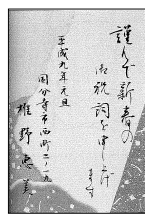 謹んで新春の
御祝詞を申し上げ
ます
平成九年元旦
国分寺市西町二ノ一九
椎野